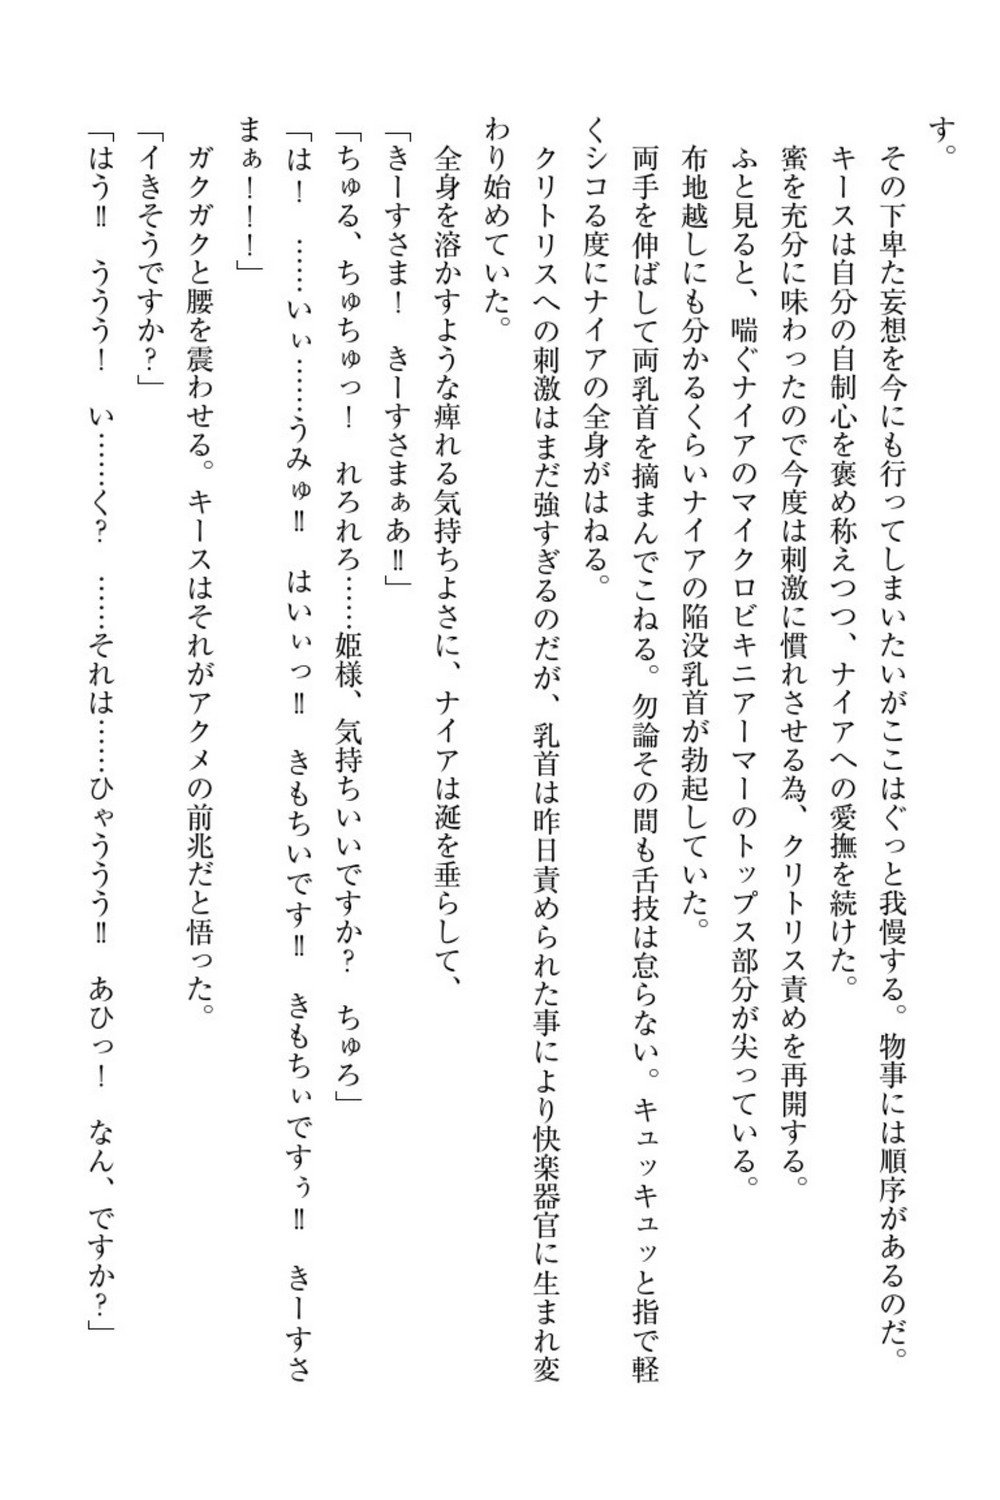 す。
　その下卑た妄想を今にも行ってしまいたいがここはぐっと我慢する。物事には順序があるのだ。
　キースは自分の自制心を褒め称えつつ、ナイアへの愛撫を続けた。
　蜜を充分に味わったので今度は刺激に慣れさせる為、クリトリス責めを再開する。
　ふと見ると、喘ぐナイアのマイクロビキニアーマーのトップス部分が尖っている。
　布地越しにも分かるくらいナイアの陥没乳首が勃起していた。
　両手を伸ばして両乳首を摘まんでこねる。勿論その間も舌技は怠らない。キュッキュッと指で軽
くシコる度にナイアの全身がはねる。
　クリトリスへの刺激はまだ強すぎるのだが、乳首は昨日責められた事により快楽器官に生まれ変
わり始めていた。
　全身を溶かすような痺れる気持ちよさに、ナイアは涎を垂らして、
「きーすさま！　きーすさまぁあ‼」
「ちゅる、ちゅちゅっ！　れろれろ……姫様、気持ちいいですか？　ちゅろ」
「は！　……いぃ……うみゅ‼　はいぃっ‼　きもちいです‼　きもちぃですぅ‼　きーすさ
まぁ！！！」
　ガクガクと腰を震わせる。キースはそれがアクメの前兆だと悟った。
「イきそうですか？」
「はう‼　ううう！　い……く？　……それは……ひゃううう‼　あひっ！　なん、ですか？」